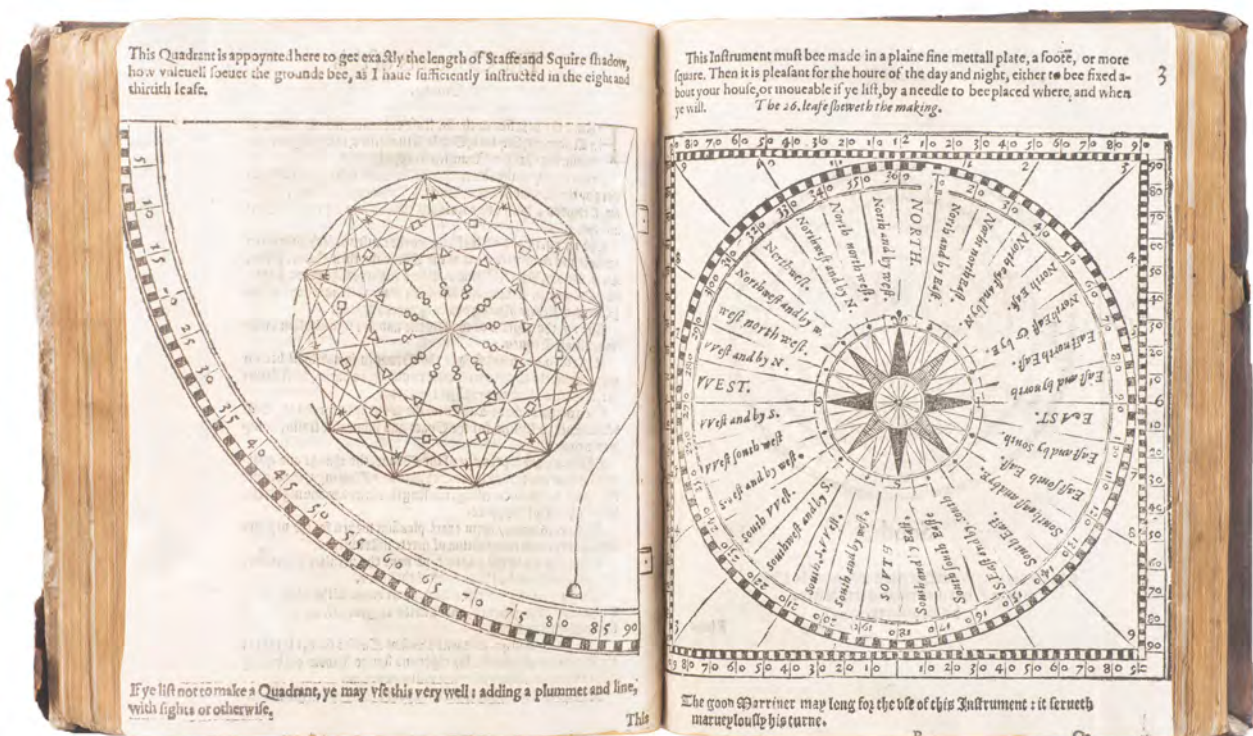 This Quadrant is appoynted here to get exactly the length of Staffe and Squire shadow,
how vneuell soeuer the grounde bee, as I haue sufficiently instructed in the eight and
thirtith lease.
5 10 15 20 25 30 35 40 45 50 55 60 65 70 75 80 85 90
If ye list not to make a Quadrant, ye may vse this very well : adding a plummet and line,
with sights or otherwise.
This
This Instrument must bee made in a plaine fine mettall plate, a foote, or more
square. Then it is pleasant for the houre of the day and night, either to bee fixed a-
bout your house, or moueable if ye list, by a needle to bee placed where, and when
ye will. The 26. leafe sheweth the making.
3
NORTH.
North and by East
North north East
North East and by N.
North East.
North East & by E.
East north East.
East and by north
EAST.
East and by South.
East South East.
South East and by E.
South East.
S. East and by South
South south East
South and by East.
SOVTH
South and by west.
South, S, VVest.
Southwest and by S.
South VVest.
S. vest and by west.
VVest south west
VVest and by S.
VVEST.
VVest and by N.
west north west.
Northwest and by w.
North west.
Northwest and by N.
North north west.
North and by west.
The good Marriner may long for the vse of this Instrument : it serueth
maruelously his turne.